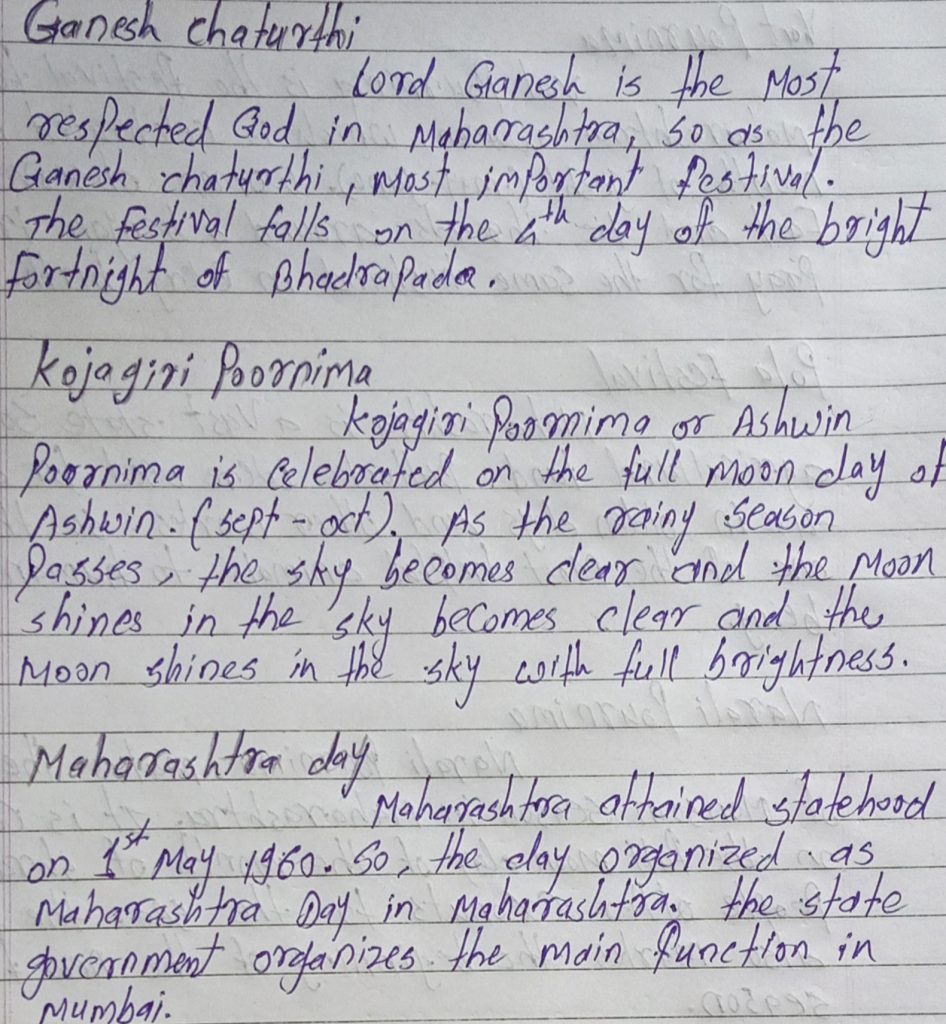 Ganesh Chaturthi
Lord Ganesh is the Most
respected God in Maharashtra, so as the
Ganesh chaturthi, most important festival.
The festival falls on the 4th day of the bright
fortnight of Bhadrapada.
Kojagiri Poornima
Kojagiri Poornima or Ashwin
Poornima is Celebrated on the full moon day of
Ashwin. (sept - oct). As the rainy season
Passes, the sky becomes clear and the Moon
shines in the sky becomes clear and the
Moon shines in the sky with full brightness.
Maharashtra day
Maharashtra attained statehood
on 1st May 1960. So, the day organized as
Maharashtra Day in Maharashtra. the state
government organizes the main function in
Mumbai.